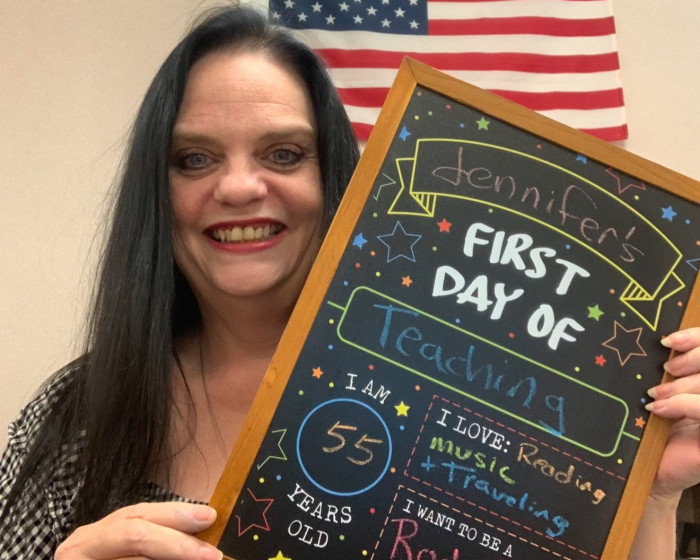 Jennifer's
FIRST
DAY OF
Teaching
I AM
55
YEARS
OLD
I LOVE: Reading
music
+ Traveling
I WANT TO BE A